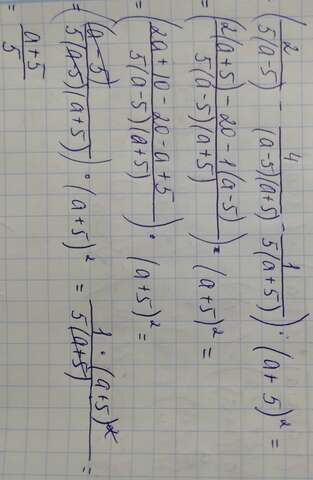 (2/5(a-5) - 4/(a-5)(a+5) - 1/5(a+5)) : (a+5)² =
= (2(a+5) - 20 - 1(a-5)/5(a-5)(a+5)) · (a+5)² =
= (2a+10-20-a+5/5(a-5)(a+5)) · (a+5)² =
= (a-5/5(a-5)(a+5)) · (a+5)² = 1·(a+5)²/5(a+5) =
= a+5/5